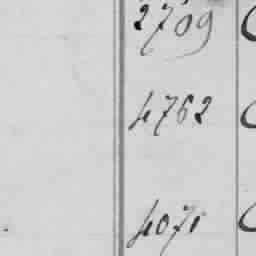 2709
4762
4071